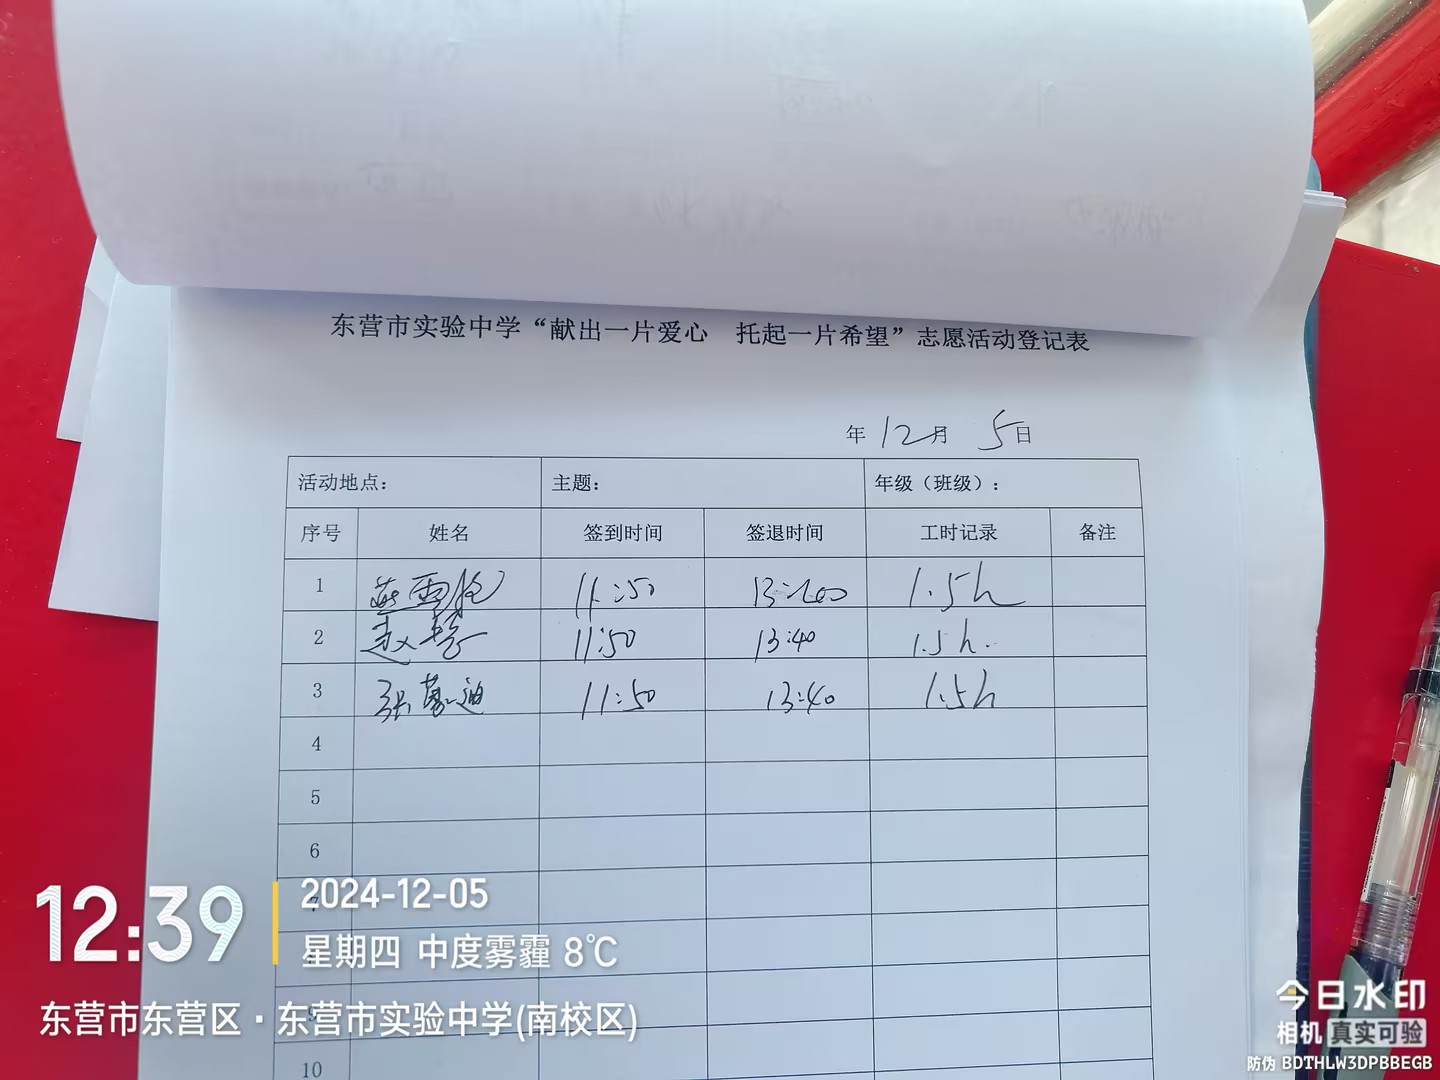 东营市实验中学“献出一片爱心 托起一片希望”志愿活动登记表
年 12月 5日
活动地点： 主题： 年级（班级）：
序号 姓名 签到时间 签退时间 工时记录 备注
1 11:50 1.5h
2 赵 11:50 13:40 1.5h.
3 张 迪 11:50 13:40 1.5h
4
5
6
7
10
12:39
2024-12-05
星期四 中度雾霾 8℃
东营市东营区·东营市实验中学(南校区)
今日水印
相机 真实可验
防伪 BDTHLW3DPBBEGB